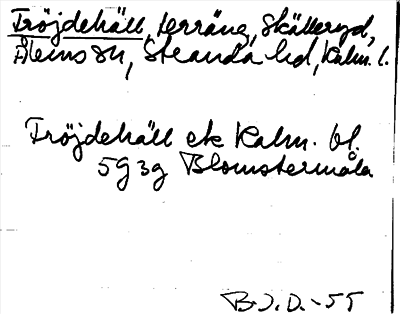 Fröjdehäll, terräng, Skälleryd,
Ålems sn, Stranda hd, Kalm. l.
Fröjdehäll ek Kalm. bl.
5g 3g Blomstermåla
B.J.D. -55